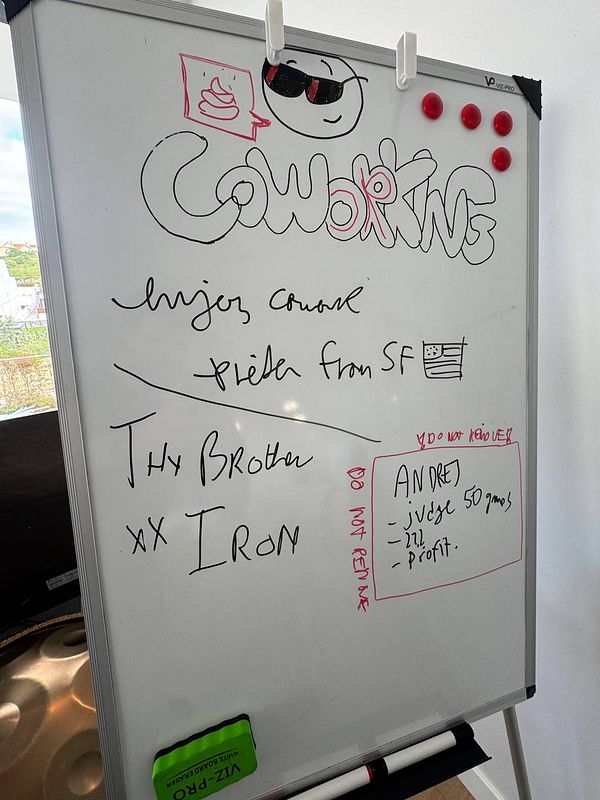 VIZ-PRO
COWORKING
enjoy cowork
from SF
THX BROTHER
XX IRON
DO NOT REMOVE
DO NOT REMOVE
ANDREJ
- judge 50
- ???
- Profit.
VIZ-PRO
WHITE BOARD ERASER